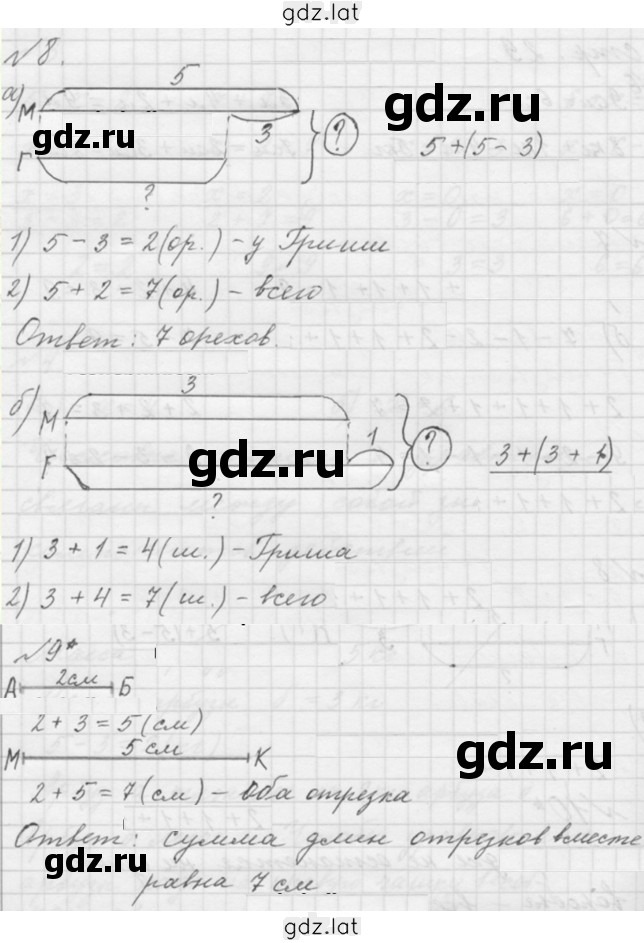 gdz.lat
№8.
а)
5
М
gdz.ru
gdz.ru
3
?
5+(5-3)
Г
?
1) 5 - 3 = 2(ор.) - у Гриши
2) 5 + 2 = 7(ор.) - всего
Ответ: 7 орехов.
б)
3
М
1
Г
gdz.ru
?
3+(3+1)
?
1) 3 + 1 = 4(ш.) - Гриша
2) 3 + 4 = 7(ш.) - всего
№9*
А 2см Б
2 + 3 = 5(см)
gdz.ru
М 5 см К
2 + 5 = 7(см) - оба отрезка
Ответ: сумма длин отрезков вместе
gdz.ru
равна 7 см
gdz.lat